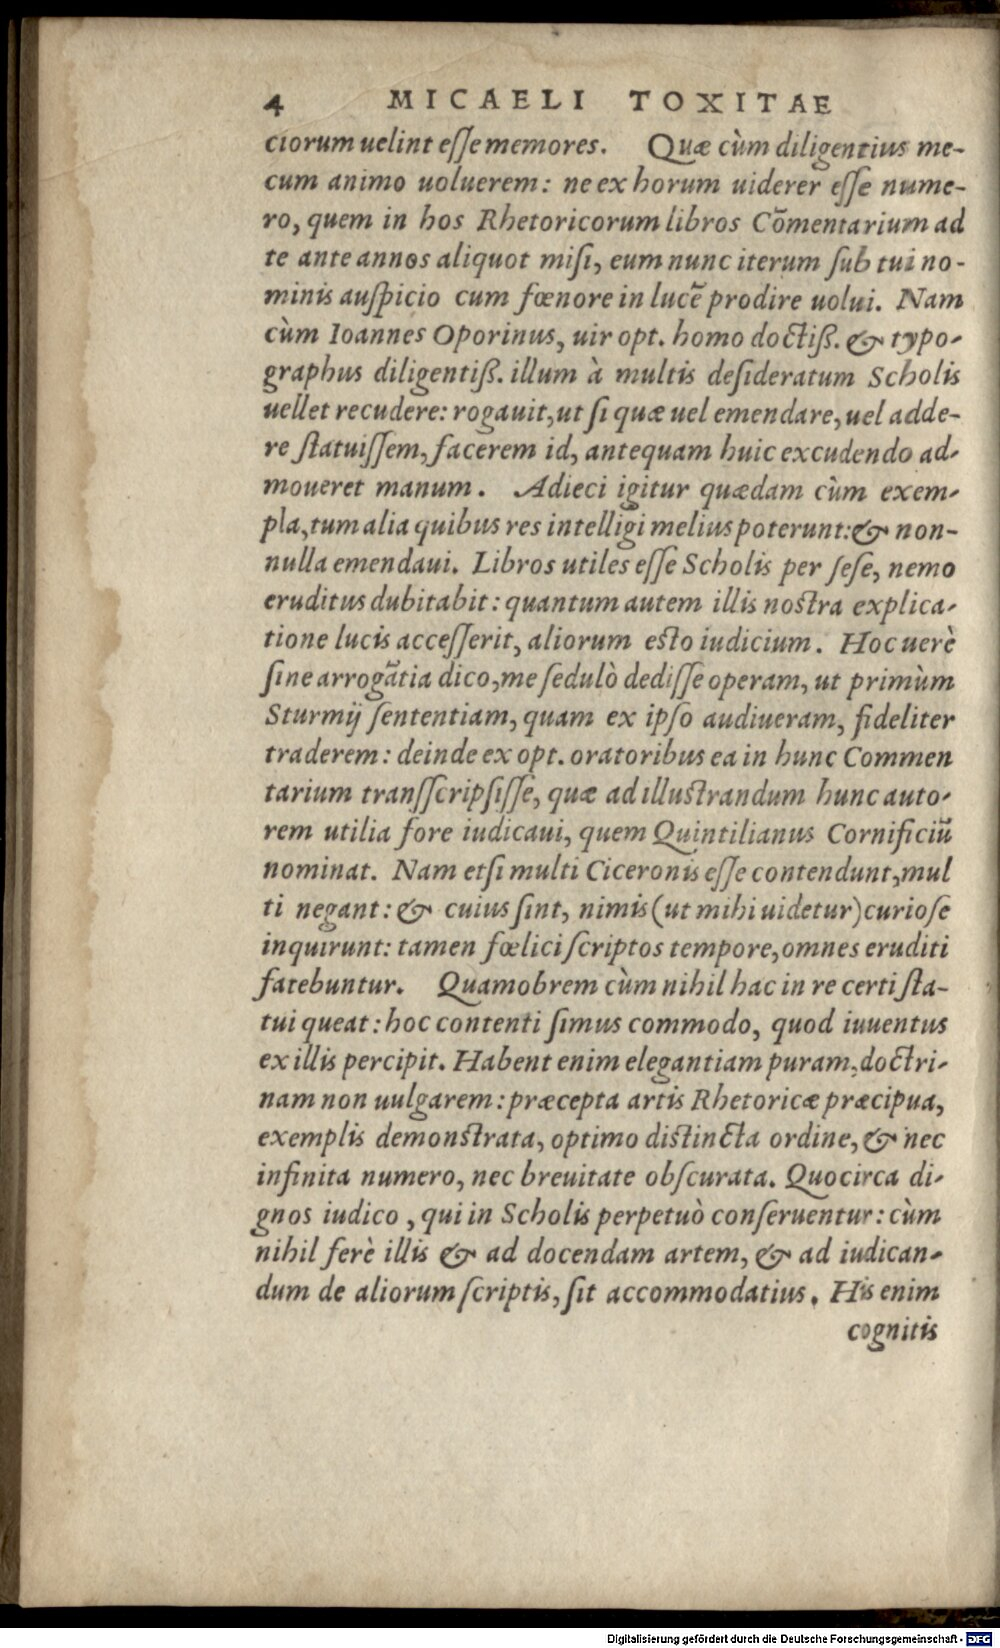 4 MICAELI TOXITAE
ciorum uelint eſſe memores. Quæ cùm diligentius me-
cum animo uoluerem: ne ex horum uiderer eſſe nume-
ro, quem in hos Rhetoricorum libros Cōmentarium ad
te ante annos aliquot miſi, eum nunc iterum ſub tui no-
minis auſpicio cum fœnore in lucē prodire uolui. Nam
cùm Ioannes Oporinus, uir opt. homo doctiß. & typo-
graphus diligentiß. illum à multis deſideratum Scholis
uellet recudere: rogauit, ut ſi quæ uel emendare, uel adde-
re ſtatuiſſem, facerem id, antequam huic excudendo ad-
moueret manum. Adieci igitur quædam cùm exem-
pla, tum alia quibus res intelligi melius poterunt: & non-
nulla emendaui. Libros utiles eſſe Scholis per ſeſe, nemo
eruditus dubitabit: quantum autem illis noſtra explica-
tione lucis acceſſerit, aliorum eſto iudicium. Hoc uerè
ſine arrogātia dico, me ſedulò dediſſe operam, ut primùm
Sturmij ſententiam, quam ex ipſo audiueram, fideliter
traderem: deinde ex opt. oratoribus ea in hunc Commen
tarium tranſſcripſiſſe, quæ ad illuſtrandum hunc auto-
rem utilia fore iudicaui, quem Quintilianus Cornificiū
nominat. Nam etſi multi Ciceronis eſſe contendunt, mul
ti negant: & cuius ſint, nimis (ut mihi uidetur) curioſe
inquirunt: tamen fœlici ſcriptos tempore, omnes eruditi
fatebuntur. Quamobrem cùm nihil hac in re certi ſta-
tui queat: hoc contenti ſimus commodo, quod iuuentus
ex illis percipit. Habent enim elegantiam puram, doctri-
nam non uulgarem: præcepta artis Rhetoricæ præcipua,
exemplis demonſtrata, optimo diſtincta ordine, & nec
infinita numero, nec breuitate obſcurata. Quocirca di-
gnos iudico, qui in Scholis perpetuò conſeruentur: cùm
nihil ferè illis & ad docendam artem, & ad iudican-
dum de aliorum ſcriptis, ſit accommodatius. His enim
cognitis
Digitalisierung gefördert durch die Deutsche Forschungsgemeinschaft - DFG